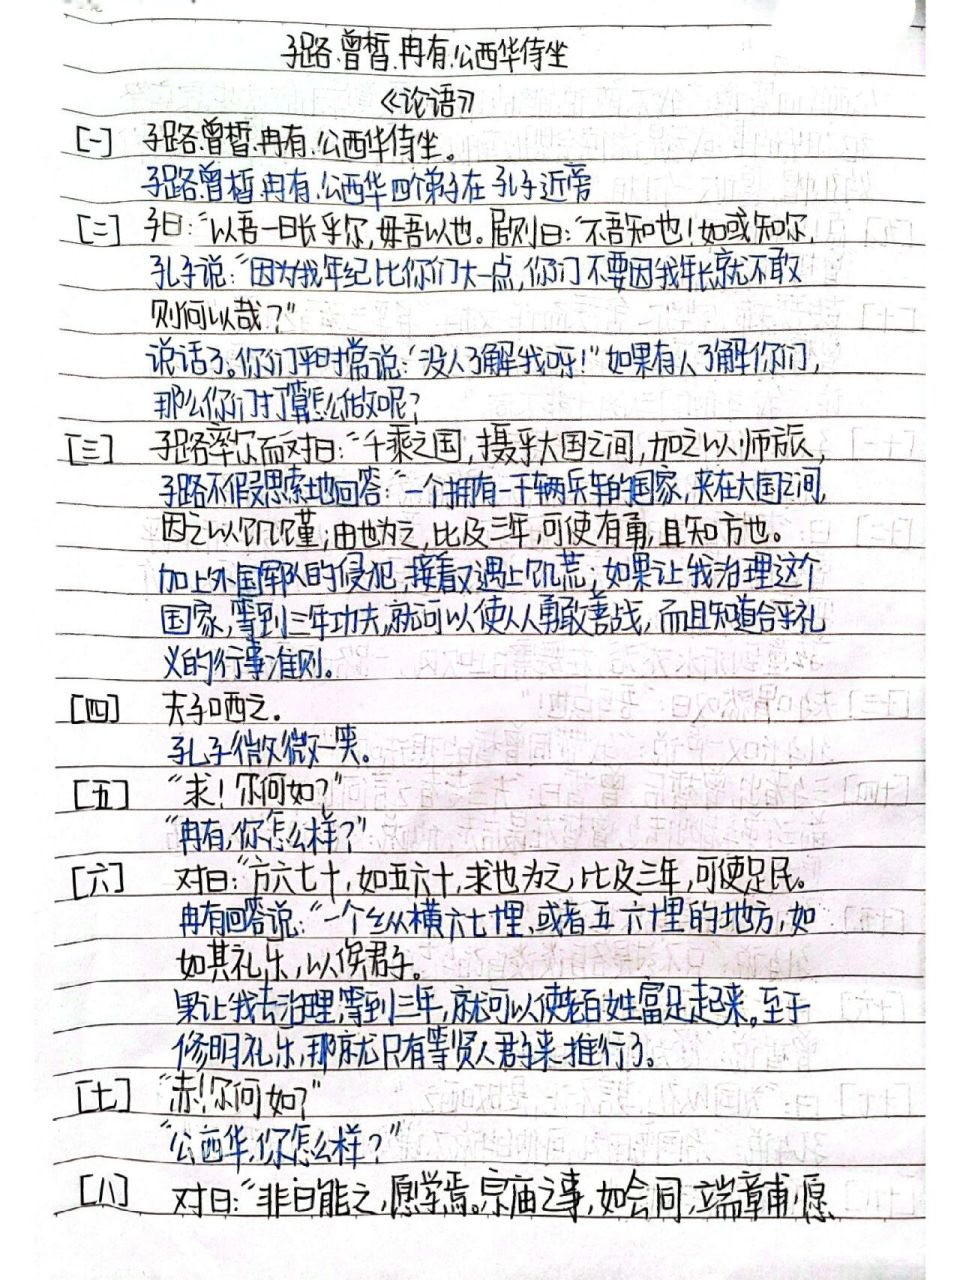 子路、曾皙、冉有、公西华侍坐
《论语》
[一] 子路、曾皙、冉有、公西华侍坐。
子路、曾皙、冉有、公西华四个弟子在孔子近旁
[二] 子曰:“以吾一日长乎尔,毋吾以也。居则曰:“不吾知也!如或知尔,
孔子说:“因为我年纪比你们大一点,你们不要因我年长就不敢
则何以哉?”
说话了。你们平时常说:‘没人了解我呀!’如果有人了解你们,
那么你们打算怎么做呢?
[三] 子路率尔而对曰:“千乘之国,摄乎大国之间,加之以师旅,
子路不假思索地回答:“一个拥有一千辆兵车的国家,夹在大国之间,
因之以饥馑;由也为之,比及三年,可使有勇,且知方也。
加上外国军队的侵犯,接着又遇上饥荒;如果让我治理这个
国家,等到三年功夫,就可以使人人勇敢善战,而且知道合乎礼
义的行事准则。
[四] 夫子哂之。
孔子微微一笑。
[五] “求!尔何如?”
“冉有,你怎么样?”
[六] 对曰:“方六七十,如五六十,求也为之,比及三年,可使足民。
冉有回答说:“一个纵横六七十里、或者五六十里的地方,如
如其礼乐,以俟君子。
果让我去治理,等到三年,就可以使老百姓富足起来。至于
修明礼乐,那就只有等贤人君子来推行了。
[七] “赤!尔何如?”
“公西华,你怎么样?”
[八] 对曰:“非曰能之,愿学焉。宗庙之事,如会同,端章甫,愿